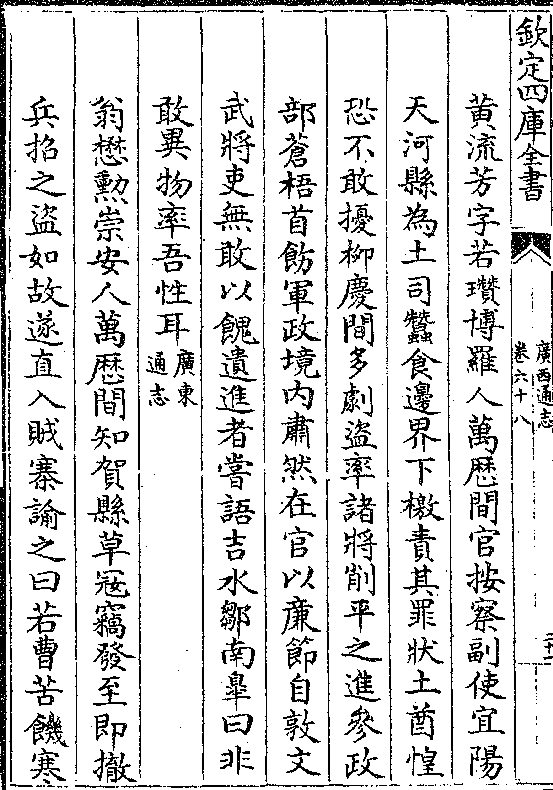 欽定四庫全書
廣西通志
卷六十八
黃流芳字若瓚博羅人萬厯間官按察副使宜陽
天河縣為土司蠶食邊界下檄責其罪狀土酋惶
恐不敢擾柳慶間多劇盜率諸將削平之進參政
部蒼梧首飭軍政境内肅然在官以廉節自敦文
武將吏無敢以餽遺進者嘗語吉水鄒南臯曰非
敢異物率吾性耳廣東通志
翁懋勳崇安人萬厯間知賀縣草冦竊發至即撤
兵招之盜如故遂直入賊寨諭之曰若曹苦饑寒